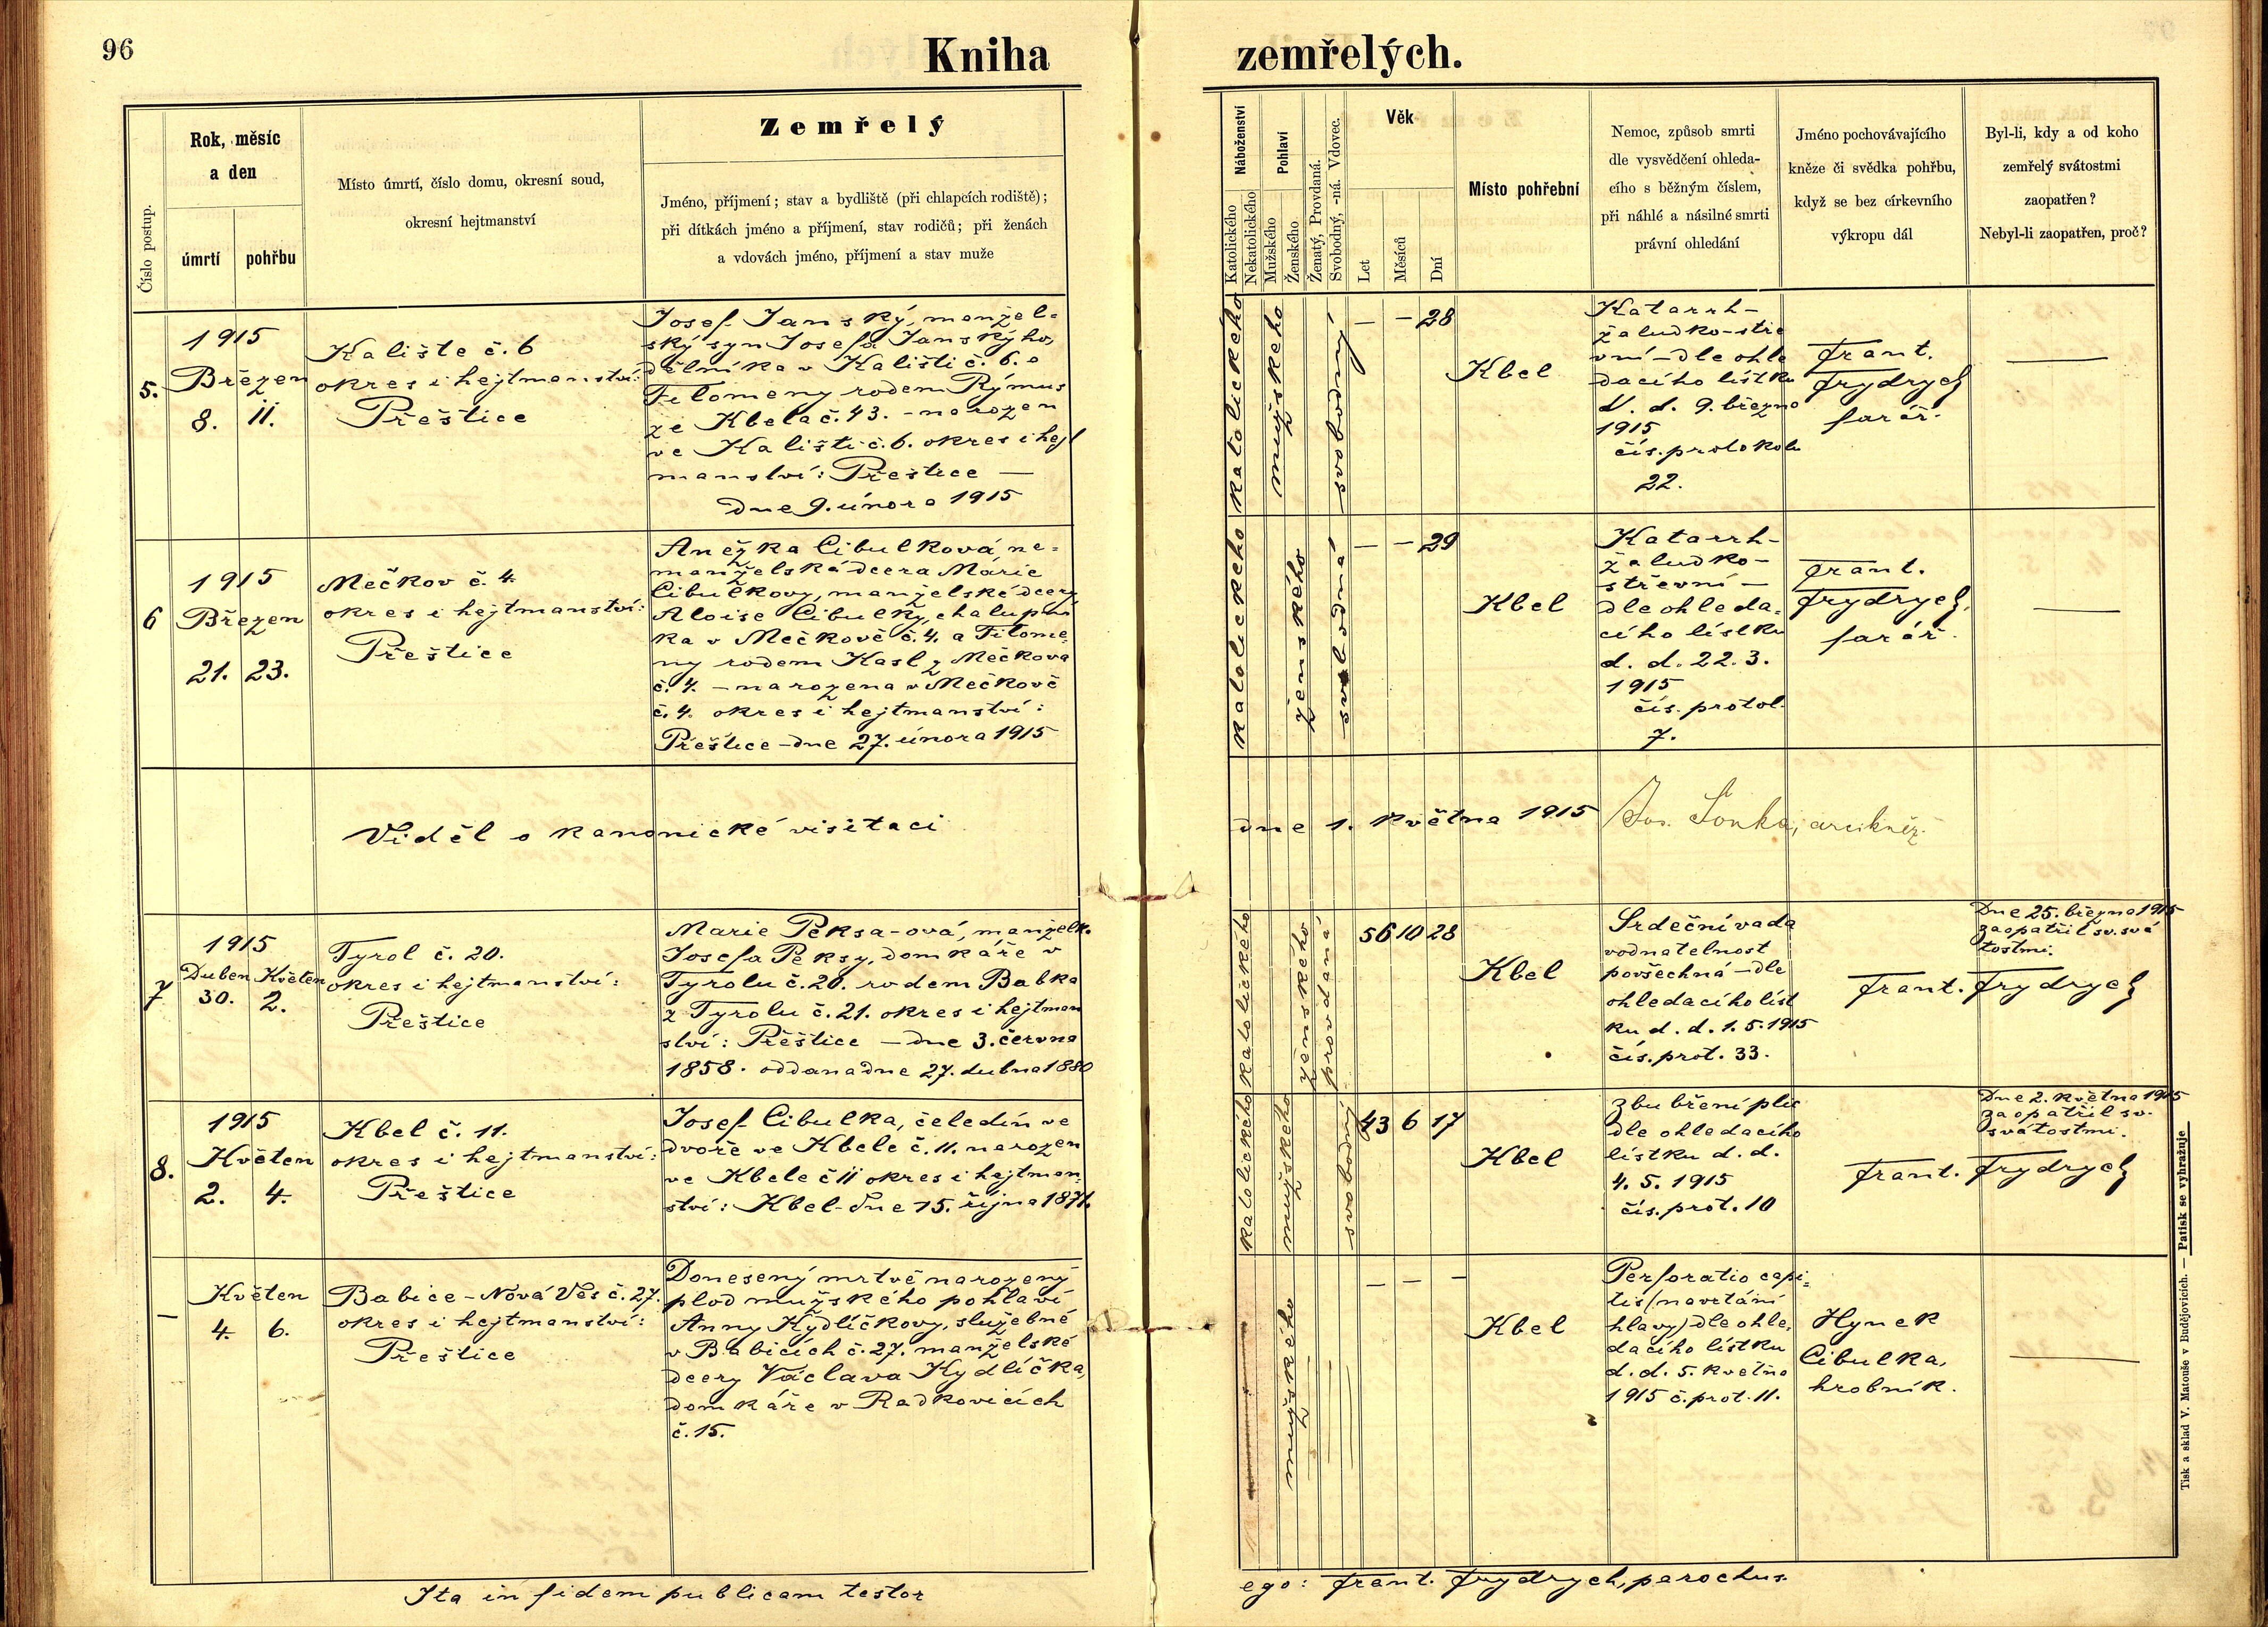 96
Kniha
zemřelých.
Číslo postup.
Rok, měsíc
a den
úmrtí
pohřbu
Místo úmrtí, číslo domu, okresní soud,
okresní hejtmanství
Zemřelý
Jméno, příjmení; stav a bydliště (při chlapcích rodiště);
při dítkách jméno a příjmení, stav rodičů; při ženách
a vdovách jméno, příjmení a stav muže
Náboženství
Katolického
Nekatolického
Pohlaví
Mužského
Ženského
Ženatý, Provdaná.
Svobodný, -ná. Vdovec.
Věk
Let
Měsíců
Dní
Místo pohřební
Nemoc, způsob smrti
dle vysvědčení ohleda-
cího s běžným číslem,
při náhlé a násilné smrti
právní ohledání
Jméno pochovávajícího
kněze či svědka pohřbu,
když se bez církevního
výkropu dál
Byl-li, kdy a od koho
zemřelý svátostmi
zaopatřen?
Nebyl-li zaopatřen, proč?
5.
1915
Březen
8. 11.
Kaliště č. 6
okres i hejtmanství:
Přeštice
Josef Janský, manžel-
ský syn Josefa Janskýho,
dělníka v Kališti č. 6. a
Filomeny rodem Rýmus
ze Kbela č. 43. - narozen
ve Kališti č. 6. okres i hejt
manství: Přeštice —
dne 9. února 1915
katolického
mužského
svobodný
— — 28
Kbel
Katarrh-
žaludko-stře
vní - dle ohle
dacího lístku
d. d. 9. března
1915
čís. protokolu
22.
Frant.
Frydrych
farář.
—
6
1915
Březen
21. 23.
Mečkov č. 4.
okres i hejtmanství:
Přeštice
Anežka Cibulková, ne-
manželská dcera Marie
Cibulkovy, manželské dcery
Aloise Cibulky, chalupní
ka v Mečkově č. 4. a Filome
ny rodem Kasl z Mečkova
č. 4. - narozena v Mečkově
č. 4. okres i hejtmanství:
Přeštice - dne 27. února 1915
katolického
ženského
svobodná
— — 29
Kbel
Katarrh-
žaludko-
střevní -
dle ohleda-
cího lístku
d. d. 22. 3.
1915
čís. protol.
7.
Frant.
Frydrych,
farář.
—
Viděl o kanonické visitaci
dne 1. května 1915
Jos. Šonka, arcikněz.
7
1915
Duben Květen
30. 2.
Tyrol č. 20.
okres i hejtmanství:
Přeštice
Marie Peksa-ová, manželk.
Josefa Peksy, domkáře v
Tyrolu č. 20. rodem Babka
z Tyrolu č. 21. okres i hejtman
ství: Přeštice — dne 3. června
1858. oddana dne 27. dubna 1880
katolického
ženského
provdaná
56 10 28
Kbel
Srdeční vada
vodnatelnost
povšechná - dle
ohledacího líst
ku d. d. 1. 5. 1915
čís. prot. 33.
Frant. Frydrych
Dne 25. března 1915
zaopatřil sv. svá
tostmi.
8.
1915
Květen
2. 4.
Kbel č. 11.
okres i hejtmanství:
Přeštice
Josef Cibulka, čeledín ve
dvoře ve Kbele č. 11. narozen
ve Kbele č 11 okres i hejtman-
ství: Kbel - dne 15. října 1871.
katolického
mužského
svobodný
43 6 17
Kbel
zbubření plic
dle ohledacího
lístku d. d.
4. 5. 1915
čís. prot. 10
Frant. Frydrych
Dne 2. května 1915
zaopatřil sv.
svátostmi.
—
Květen
4. 6.
Babice - Nová Ves č. 27.
okres i hejtmanství:
Přeštice
Donesený mrtvě narozený
plod mužského pohlaví
Anny Kydlíčkovy, služebné
v Babicích č. 27. manželské
dcery Václava Kydlíčka,
domkáře v Radkovicích
č. 15.
mužského
— — —
Kbel
Perforatio capi-
tis (navrtání
hlavy) dle ohle-
dacího lístku
d. d. 5. května
1915 č. prot. 11.
Hynek
Cibulka,
hrobník.
—
Ita in fidem publicam testor
ego: Frant. Frydrych, parochus.
Tisk a sklad V. Matouše v Budějovicích. — Patisk se vyhražuje